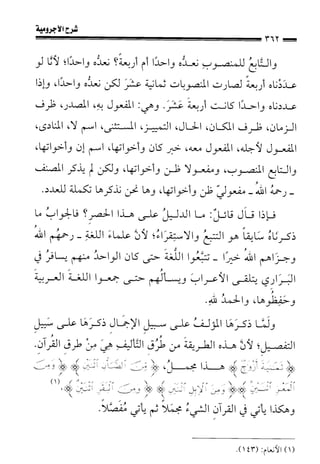 شرح الآجرومية
٣٦٢
والتَّابعُ للمنصوب نعدُّه واحدًا أم أربعةً؟ نعدُّه واحدًا؛ لأنَّا لو
عدَدْناه أربعةً لصارت المنصوبات ثمانيةَ عشَرَ لكن نعدُّه واحدًا، وإذا
عددناه واحدًا كانت أربعةَ عَشَرَ. وهي: المفعول به، المصدر، ظرف
الزمان، ظرف المكان، الحال، التمييز، المستثنى، اسم لا، المنادى،
المفعول لأجله، المفعول معه، خبر كان وأخواتها، اسم إن وأخواتها،
والتابع المنصوب، ومفعولا ظن وأخواتها، ولكن لم يذكر المصنف
- رحمهُ اللهُ - مفعوليْ ظن وأخواتها، وها نحن نذكرها تكملة للعدد.
فإذا قال قائلٌ: ما الدليلُ على هذا الحصرِ؟ فالجوابُ ما
ذكرناهُ سَابقًا هو التتبعُ والاستقراءُ؛ لأنَّ علماءَ اللغةِ - رحمهُم اللهُ
وجزاهم اللهُ خيرًا - تتبَّعوا اللُّغةَ حتى كان الواحدُ منهم يسافرُ في
البَرَاري يتلقى الأعرابَ ويسألُهم حتى جمعوا اللغةَ العربيةَ
وحَفِظُوها، والحمدُ للهِ.
ولَمَّا ذكرَهَا المؤلفُ على سبيلِ الإجمالِ ذكرَهَا على سَبيلِ
التفصيلِ؛ لأنَّ هذه الطريقةَ من طُرُقِ التَّأليفِ هي مِنْ طرقِ القرآنِ.
﴿ثَمَٰنِيَةَ أَزْوَٰجٍ﴾ هذا مجملٌ، ﴿مِّنَ ٱلضَّأْنِ ٱثْنَيْنِ﴾ ﴿وَمِنَ
ٱلْمَعْزِ ٱثْنَيْنِ﴾ ﴿وَمِنَ ٱلْإِبِلِ ٱثْنَيْنِ﴾ ﴿وَمِنَ ٱلْبَقَرِ ٱثْنَيْنِ﴾(١).
وهكذا يأتي في القرآنِ الشيءُ مجملاً ثم يأتي مُفصَّلاً.
(١) الأنعام: (١٤٣).